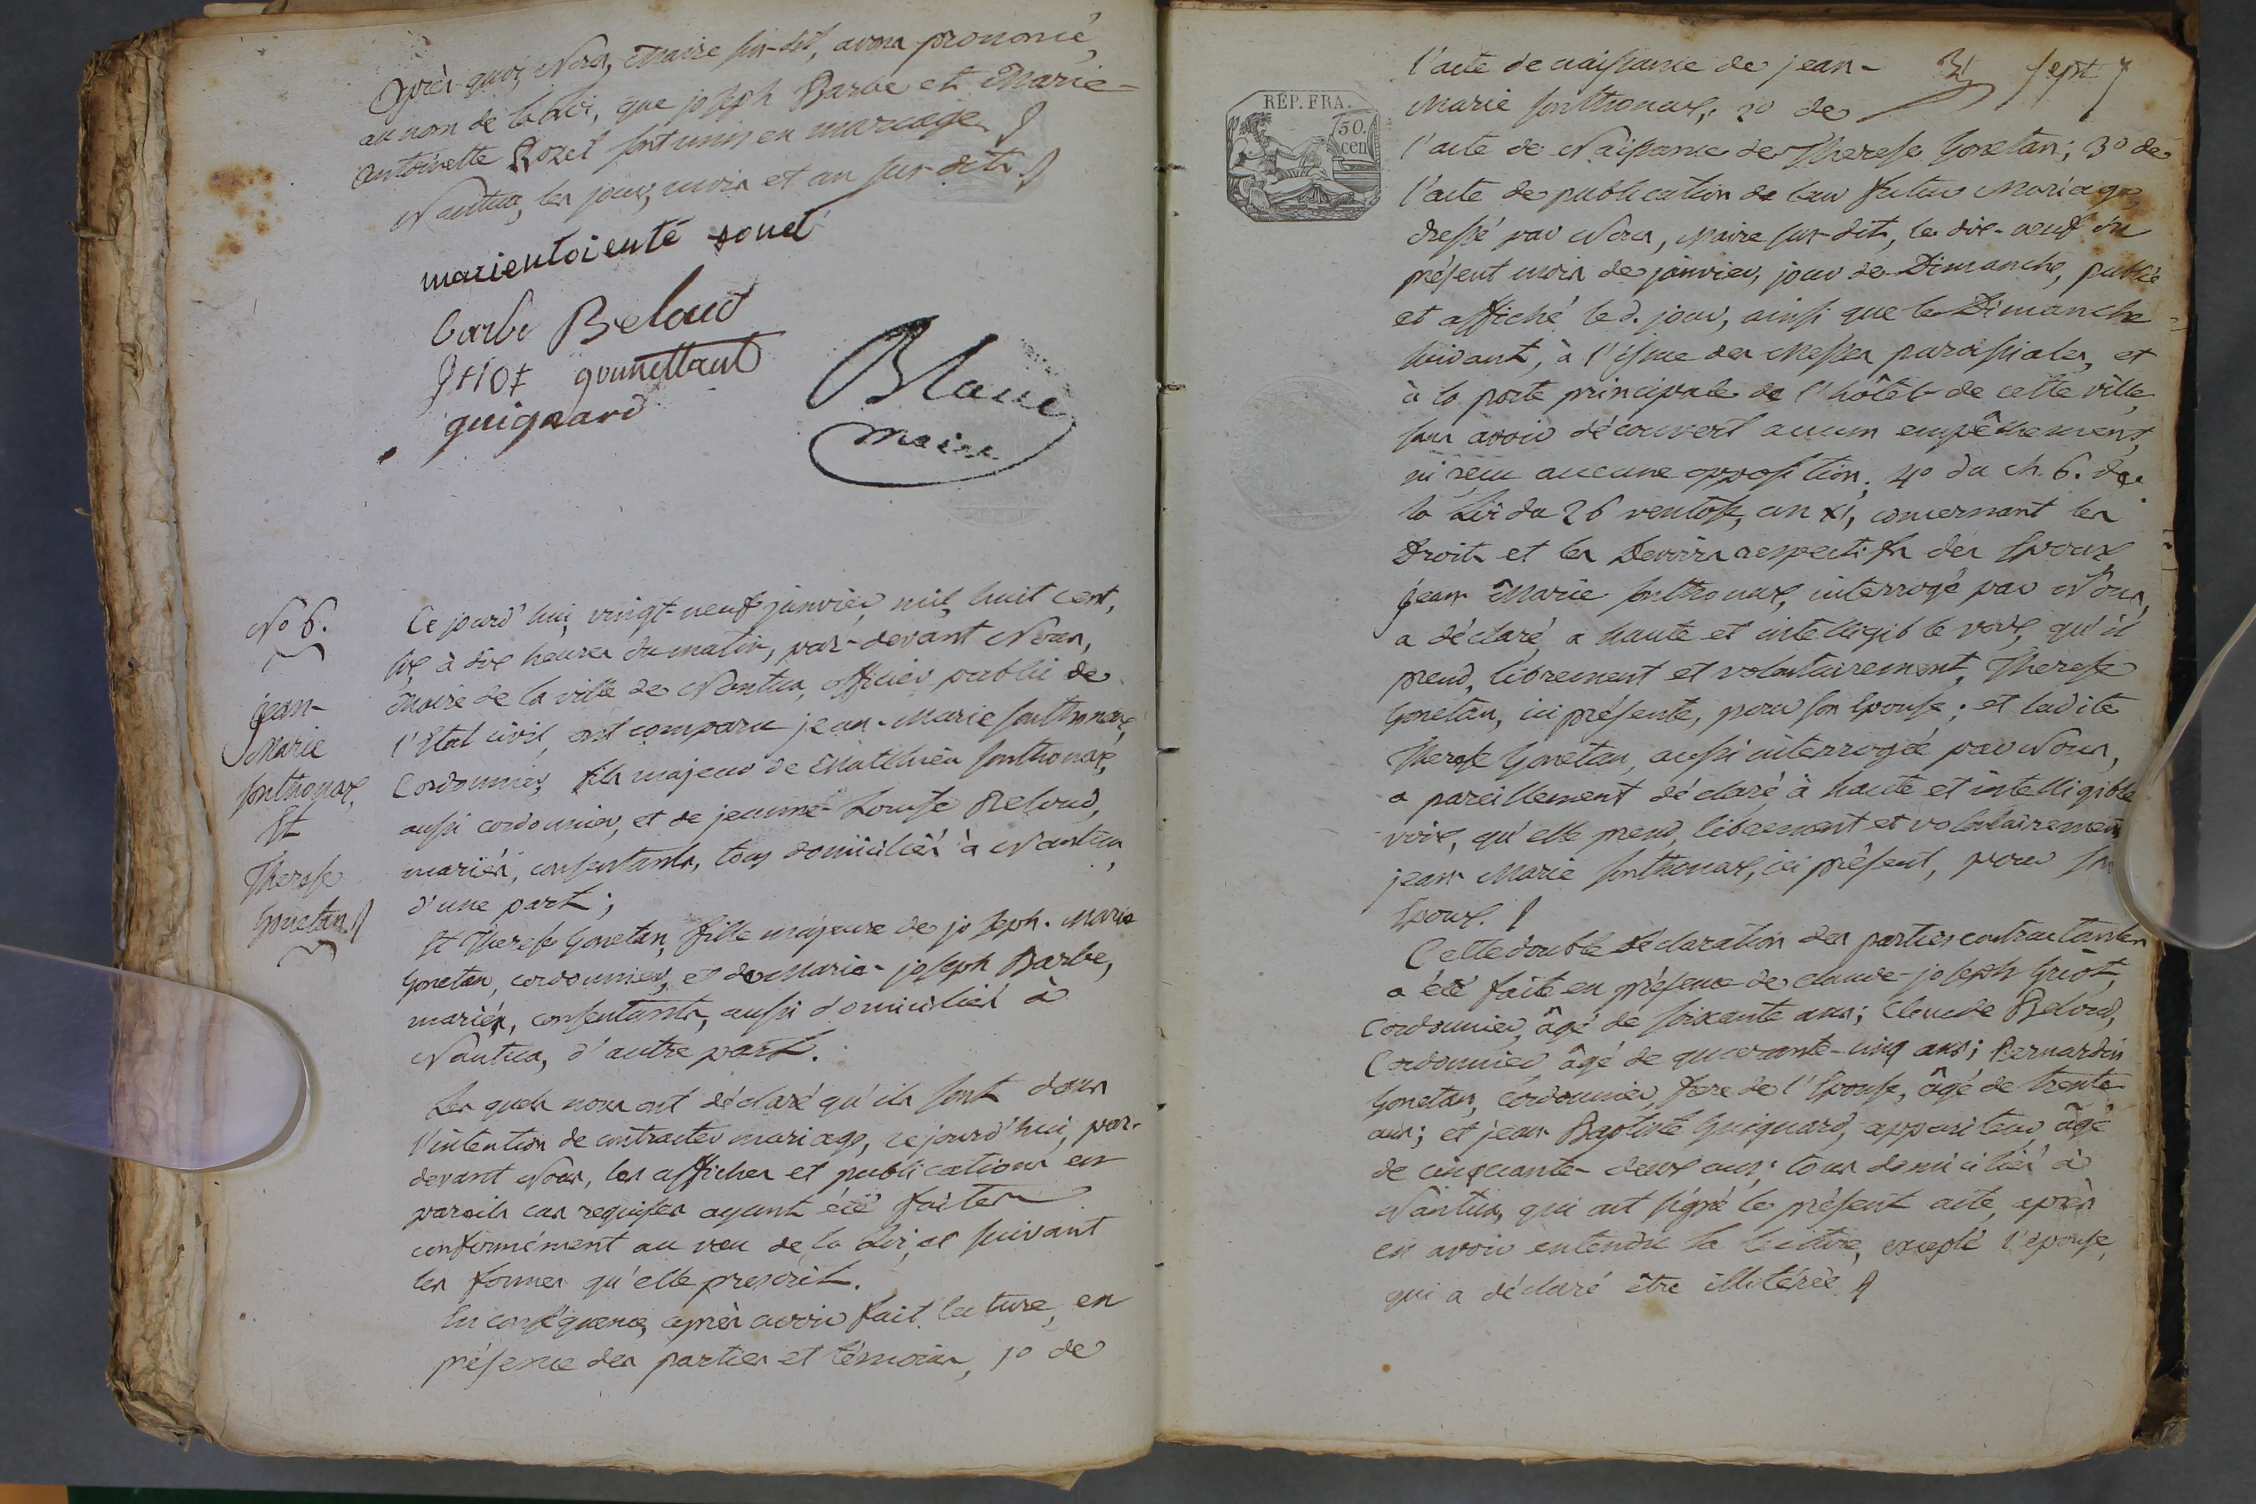 Après quoi, Nous, Maire sus-dit, avons prononcé,
au nom de la Loi, que joseph Barbe et Marie-
antoinette Rozet sont unis en mariage.
Nantua, les jour, mois et an sus-dits.
marientoienté
barbe Beloud
griot gounettant
guignard
Blanc
maire
No 6.
jean-
Marie
sonthonax,
Et
Therese
Gonetan
Ce jourd'hui, vingt-neuf janvier, mil huit cent,
six, à dix heures du matin, par-devant Nous,
Maire de la ville de Nantua, officier public de
l'Etat civil, ont comparu jean-Marie sonthonax,
Cordonnier, fils majeur de Matthieu sonthonax,
aussi cordonnier, et de jeanne-Louise Beloud,
mariés, consentants, tous domiciliés à Nantua,
d'une part;
Et Therese Gonetan, fille majeure de joseph-Marie
Gonetan, cordonnier, et de Marie-joseph Barbe,
mariés, consentants, aussi domiciliés à
Nantua, d'autre part.
Les quels nous ont déclaré qu'ils sont dans
l'intention de contracter mariage, ce jourd'hui, par-
devant Nous, les affiches et publications en
pareils cas requises ayant été faites
conformément au voeu de la Loi, et suivant
les formes qu'elle prescrit.
En conséquence, après avoir fait lecture, en
présence des parties et témoins, 1o de
sept
REP. FRA.
50.
cen
l'acte de naissance de jean-
Marie sonthonax; 2o de
l'acte de Naissance de Therese Gonetan; 3o de
l'acte de publication de leur futur Mariage,
dressé par Nous, Maire sus-dit, le dix-neuf du
présent mois de janvier, jour de Dimanche, publié
et affiché led. jour, ainsi que le Dimanche
suivant, à l'issue des Messes paroissiales, et
à la porte principale de l'hôtel de cette ville,
sans avoir découvert aucun empêchement,
ni reçu aucune opposition; 4o du ch. 6. de
la Loi du 26 ventose, an XI, concernant les
Droits et les Devoirs respectifs des Epoux,
jean Marie sonthonax, interrogé par Nous,
a déclaré, a haute et intelligible voix, qu'il
prend, librement et volontairement, Therese
Gonetan, ici présente, pour son Epouse; et ladite
Therese Gonetan, aussi interrogée par Nous,
a pareillement déclaré à haute et intelligible
voix, qu'elle prend, librement et volontairement
jean Marie sonthonax, ici présent, pour son
Epoux.
Cette double déclaration des parties contractantes
a été faite en présence de claude-joseph Griot,
Cordonnier, âgé de soixante ans; Claude Beloud,
Cordonnier âgé de quarante-cinq ans; Bernardin
Gonetan, Cordonnier, frere de l'Epouse, âgé de trente
ans; et jean Baptiste Guignard, appariteur, âgé
de cinquante-deux ans; tous domiciliés à
Nantua, qui ont signé le présent acte, après
en avoir entendu la lecture, excepté l'épouse,
qui a déclaré être illitérée.